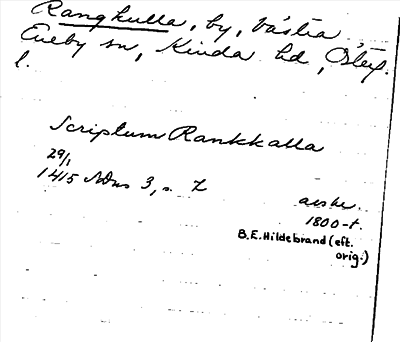 Rangkulla, by, Västra
Eneby sn, Kinda hd, Österg.
l.
Scriptum Rankkalla
29/1
1415 Ndns 3, s. 2
avskr.
1800-t.
B.E. Hildebrand (eft.
orig.)